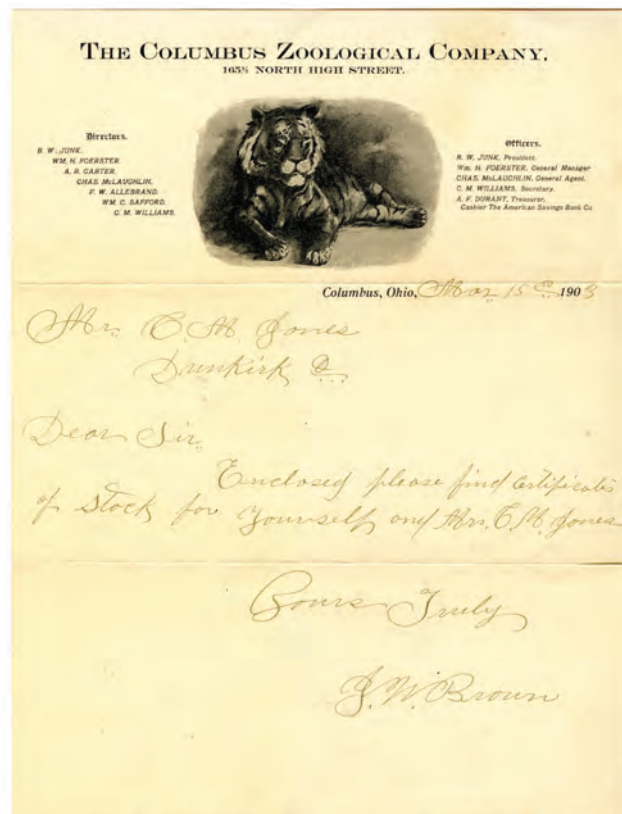 THE COLUMBUS ZOOLOGICAL COMPANY,
165½ NORTH HIGH STREET.
Directors.
B. W. JUNK.
WM. H. FOERSTER.
A. R. CARTER.
CHAS. McLAUGHLIN.
F. W. ALLEBRAND.
WM. C. SAFFORD.
C. M. WILLIAMS.
Officers.
B. W. JUNK, President.
Wm. H. FOERSTER, General Manager
CHAS. McLAUGHLIN, General Agent.
C. M. WILLIAMS, Secretary.
A. F. DURANT, Treasurer.
Cashier The American Savings Bank Co
Columbus, Ohio, Mar 15 1903
Mr. C. M. Jones
Dunkirk O.
Dear Sir
Enclosed please find certificates
of stock for yourself and Mrs. C. M. Jones
Yours Truly
J. W. Brown